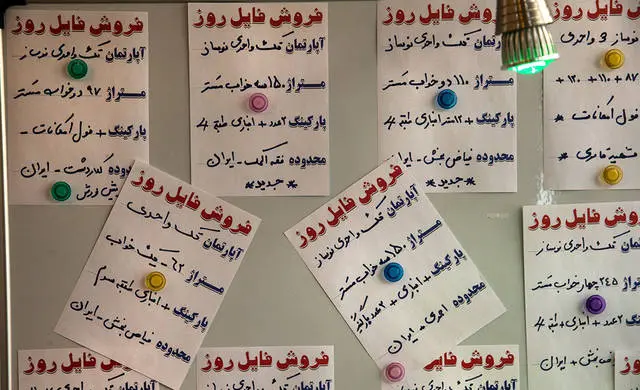 فروش فایل روز
آپارتمان تک واحدی نوساز
متراژ ۹۷ دو خوابه مستر
پارکینگ + فول امکانات -
محدوده گلدشت - ایران
فروش فایل روز
آپارتمان تک واحدی نوساز
متراژ ۱۵۰ سه خواب مستر
پارکینگ ۲ عدد + انباری طبقه ۴
محدوده - ایران
* جدید *
فروش فایل روز
آپارتمان تک واحدی نوساز
متراژ ۱۱۰ دو خواب مستر
پارکینگ + ۱۲ متر انباری طبقه ۴
محدوده فیاض بخش - ایران
* جدید *
فروش فایل روز
نوساز 3 واحدی
۸۷ + ۱۱۰ + ۱۳۰ +
فول امکانات *
*
فروش فایل روز
آپارتمان تک واحدی
متراژ ۶۲ - یک خواب
پارکینگ + انباری طبقه سوم
محدوده فیاض بخش - ایران
فروش فایل روز
آپارتمان تک واحدی نوساز
متراژ ۱۵۰ سه خواب مستر
پارکینگ + انباری + ۲ عدد
محدوده - ایران
فروش فایل روز
آپارتمان تک واحدی نوساز
متراژ ۲۴۵ چهار خواب مستر
پارکینگ ۲ عدد + انباری + طبقه ۴
بخش - ایران
فروش فایل روز
فروش فایل روز
آپارتمان تک واحدی نوساز
فایل روز